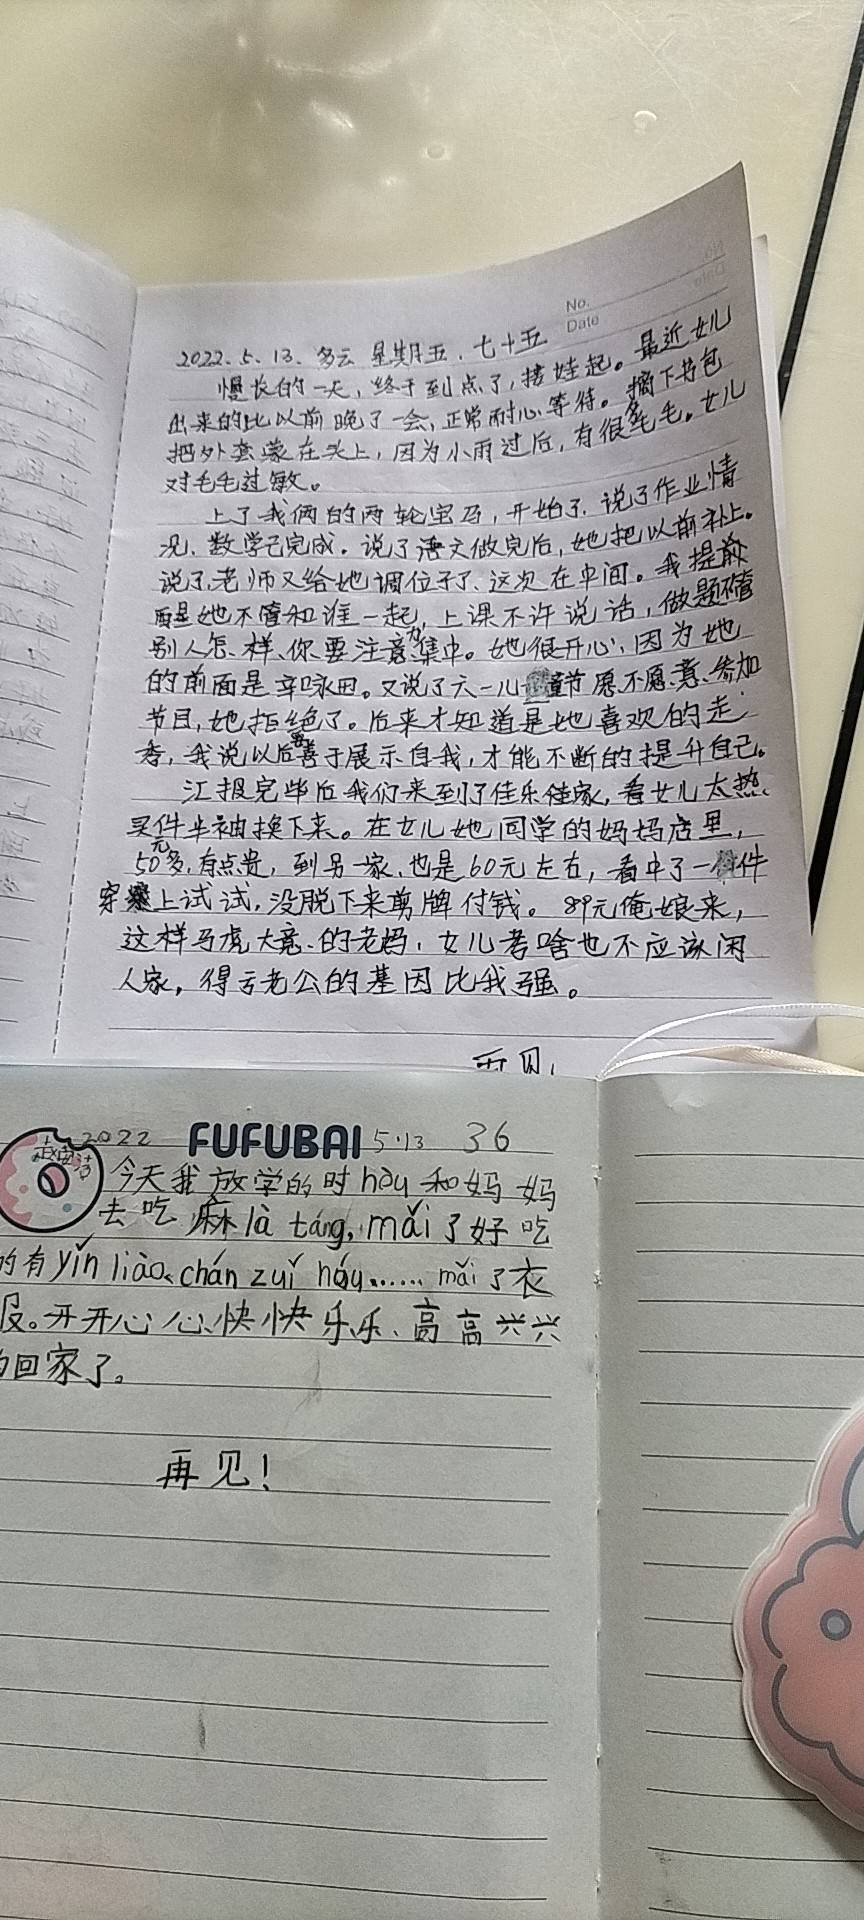 No.
Date
2022.5.13.多云 星期五.七十五
慢长的一天,终于到点了,接娃起。最近女儿
出来的比以前晚了一会,正常耐心等待。摘下书包
把外套蒙在头上,因为小雨过后,有很多毛毛。女儿
对毛毛过敏。
上了我俩的两轮宝马,开始了.说了作业情
况.数学已完成.说了语文做完后,她把以前补上。
说了.老师又给她调位子了.这次在中间。我提前
醒是她不管和谁一起,上课不许说话,做题不管
别人怎.样、你要注意力集中。她很开心,因为她
的前面是辛咏田。又说了六一儿童节愿不愿.意.参加
节目,她拒绝了。后来才知道是她喜欢的走
秀,我说以后要善于展示自我,才能不断的提升自己。
汇报完毕后我们来到了佳乐佳家,看女儿太热、
买件半袖换下来。在女儿她同学的妈妈店里,
50元多,有点贵,到另一家.也是60元左右,看中了一件
穿上试试,没脱下来剪牌付钱。89元俺娘来,
这样马虎大意.的老妈.女儿考啥也不应该闲
人家,得亏老公的基因比我强。
再见!
2022 FUFUBAI 5.13 36
今天我放学的时hòu和妈妈
去吃麻là táng,mǎi了好吃
的有yǐn liào、chán zuǐ hóu……mǎi了衣
服。开开心心、快快乐乐、高高兴兴
的回家了。
再见!